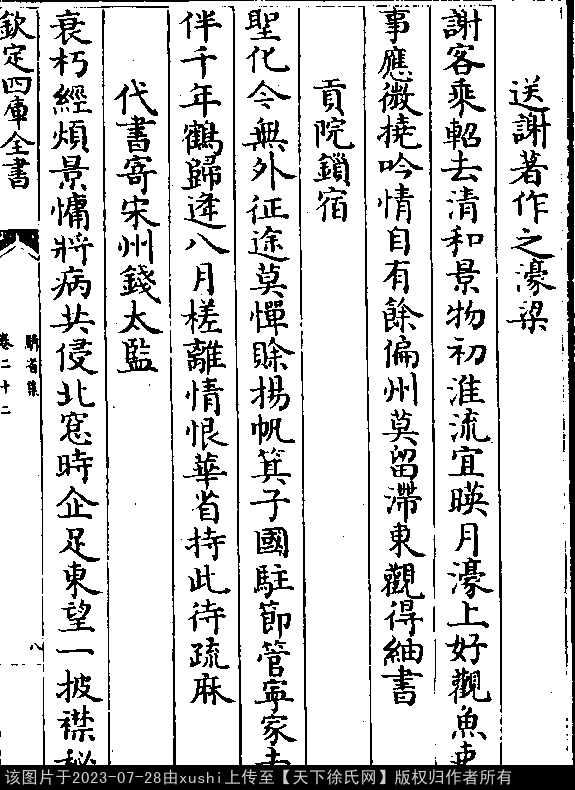 送謝著作之濠梁
謝客乘軺去清和景物初淮流宜暎月濠上好觀魚吏
事應微撓吟情自有餘偏州莫留滯東觀得紬書
貢院鎖宿
聖化今無外征途莫憚賖揚帆箕子國駐節管寧家去
伴千年鶴歸逢八月槎離情恨華省持此待疏麻
代書寄宋州錢太監
衰朽經煩景慵將病共侵北窓時企足東望一披襟秘
欽定四庫全書
騎省集
卷二十二
八
该图片于2023-07-28由xushi上传至【天下徐氏网】版权归作者所有